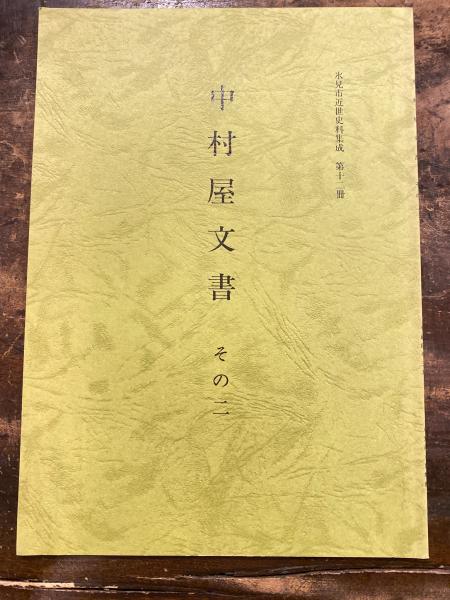 氷見市近世史料集成 第十一冊
中村屋文書 その二